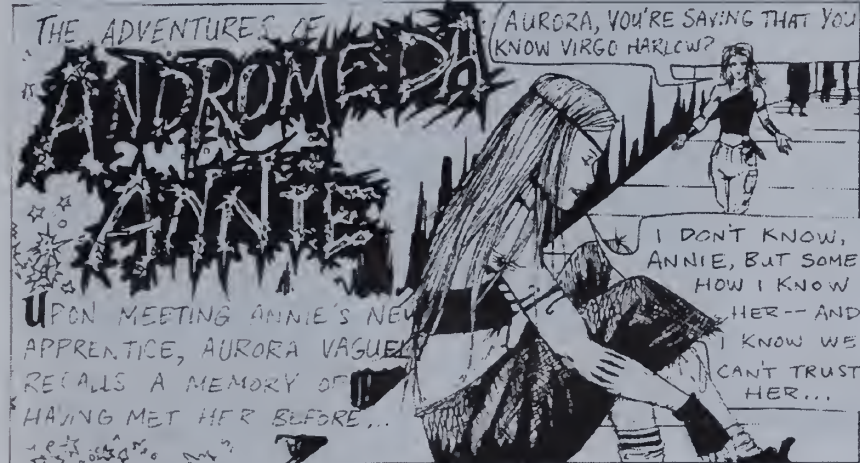 THE ADVENTURES OF
ANDROMEDA
ANNIE
UPON MEETING ANNIE'S NEW
APPRENTICE, AURORA VAGUEL
RECALLS A MEMORY OF
HAVING MET HER BEFORE...
AURORA, YOU'RE SAYING THAT YOU
KNOW VIRGO HARLOW?
I DON'T KNOW,
ANNIE, BUT SOME
HOW I KNOW
HER-- AND
I KNOW WE
CAN'T TRUST
HER...